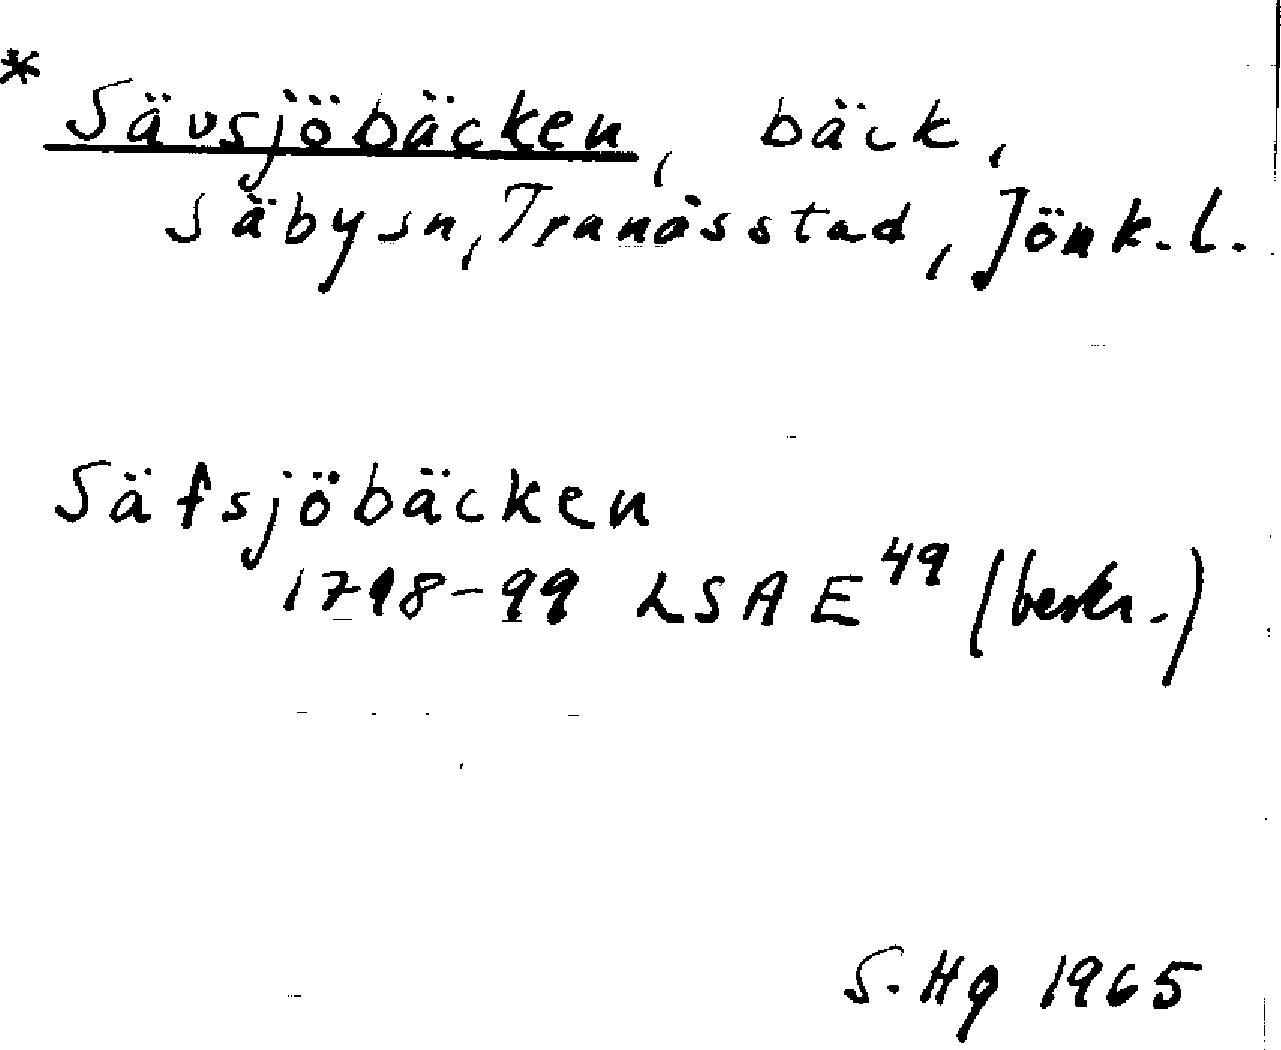 * Sävsjöbäcken, bäck,
Säby sn, Tranås stad, Jönk. l.
Säfsjöbäcken
1798-99 LSA E 49 (beskr.)
S. Hg 1965